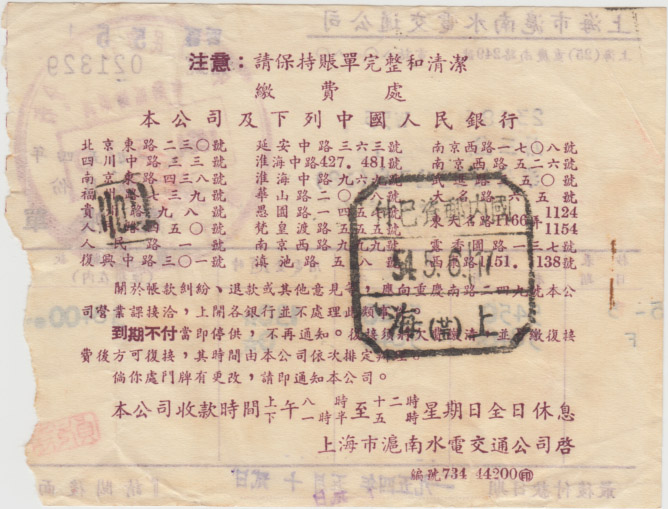 注意：請保持賬單完整和清潔
繳費處
本公司及下列中國人民銀行
北京東路二三〇號 延安中路三六三號 南京西路一七〇八號
四川中路三三號 淮海中路427.481號 南京西路五二六號
南京東路四三八號 淮海中路九六九號 武 路五〇號
福 路七三九號 華山路二〇八號 大名路六五號
貴 路九八號 愚園路一四五 號 東大名路1166弄1124 1154
人 路四五〇號 梵皇渡路五五五號
人民路一號 南京西路九五九號 電香園路一三七號
復興中路三〇一號 滇池路五八號 西 路151.138號
關於帳款糾紛、退款或其他意見等，應向重慶南路二四九號本公
司營業課接洽，上開各銀行並不處理此類
到期不付當即停供，不再通知。復接須將欠 繳清，並 繳復接
費後方可復接，其時間由本公司依次排定
倘你處門牌有更改，請即通知本公司。
本公司收款時間上午八時至十二時 下午一時半至五時 星期日全日休息
上海市滬南水電交通公司啓
編號734 44200㊞
收
國內郵資已付
54.5.6.17
上(营)海
021329
上海市滬南水電交通公司